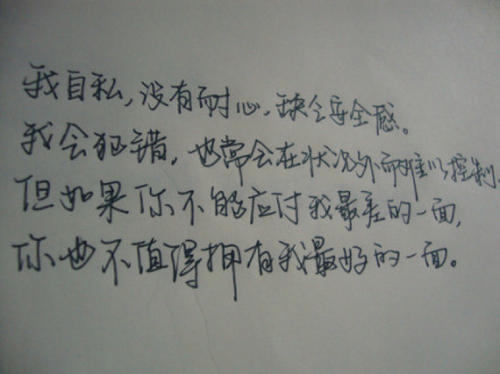 我自私,没有耐心,缺乏安全感。
我会犯错,也常会在状况外而难以控制.
但如果你不能应付我最差的一面,
你也不值得拥有我最好的一面。